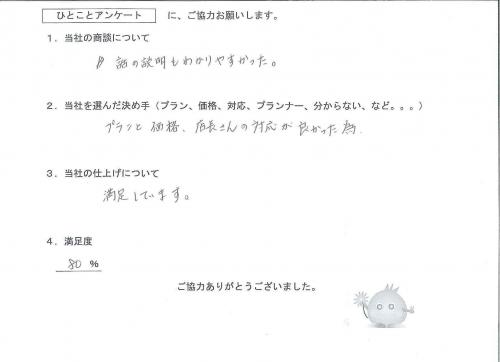 ひとことアンケート に、ご協力お願いします。
1．当社の商談について
話の説明もわかりやすかった。
2．当社を選んだ決め手（プラン、価格、対応、プランナー、分からない、など。。。）
プランと価格、店長さんの対応が良かった為.
3．当社の仕上げについて
満足しています。
4．満足度
80 %
ご協力ありがとうございました。